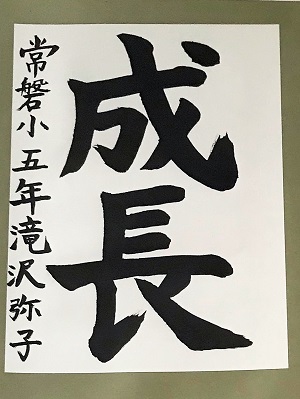 成長
常磐小五年滝沢弥子